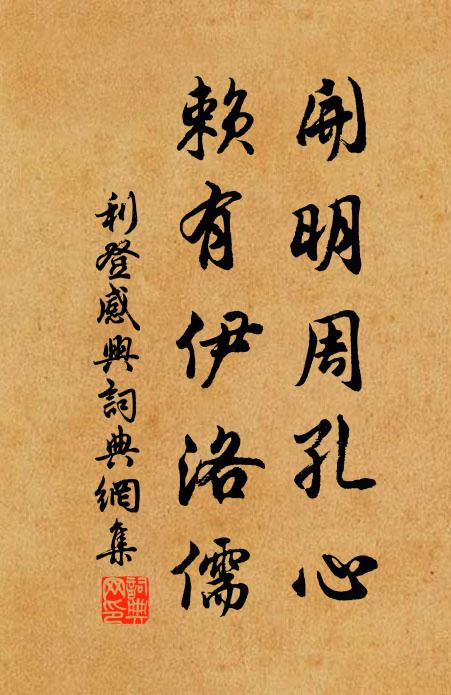 開明周孔心
賴有伊洛儒
利登感興詞典網集
詞典網印